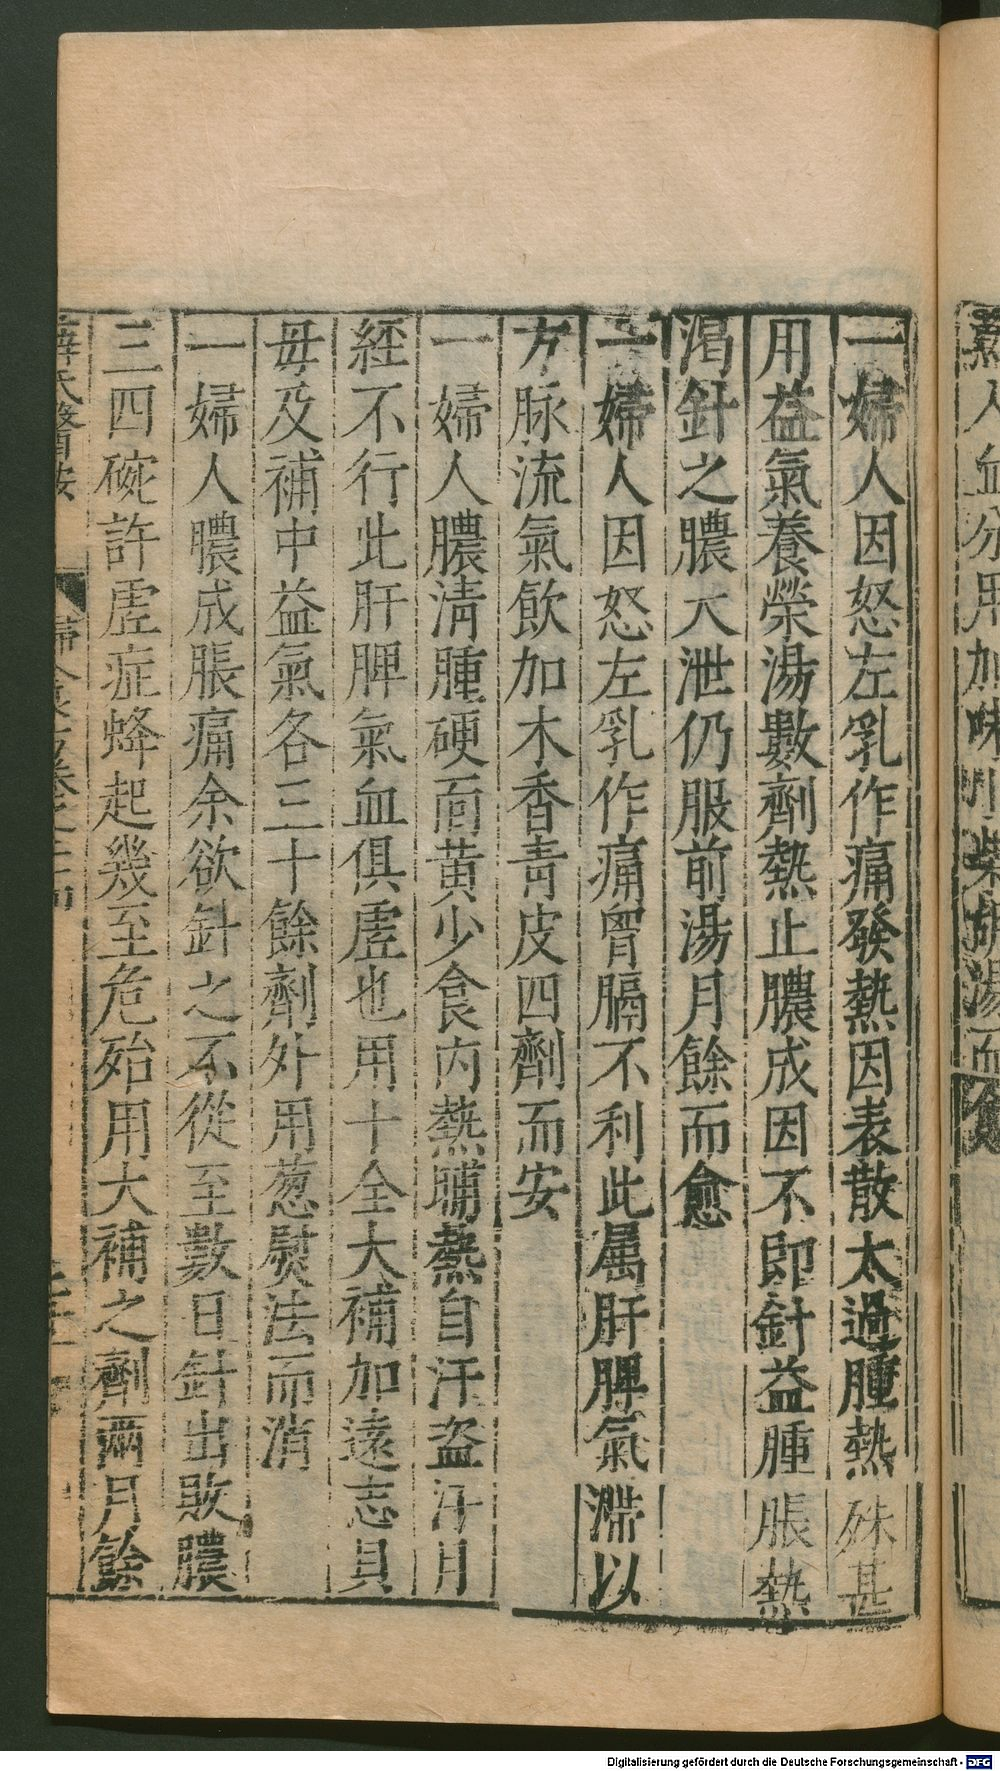 一婦人因怒左乳作痛發熱因表散太過腫熱殊甚
用益氣養榮湯數劑熱止膿成因不即針益腫脹熱
渴針之膿大泄仍服前湯月餘而愈
一婦人因怒左乳作痛胷膈不利此屬肝脾氣滯以
方脉流氣飲加木香青皮四劑而安
一婦人膿清腫硬面黃少食內熱晡熱自汗盜汗月
經不行此肝脾氣血俱虗也用十全大補加遠志貝
毋及補中益氣各三十餘劑外用葱熨法而消
一婦人膿成脹痛余欲針之不從至數日針出敗膿
三四碗許虗症蜂起幾至危殆用大補之劑兩月餘
薛氏醫按
婦人良方卷之二十四
人血分用加味
柴胡湯而
Digitalisierung gefördert durch die Deutsche Forschungsgemeinschaft - DFG